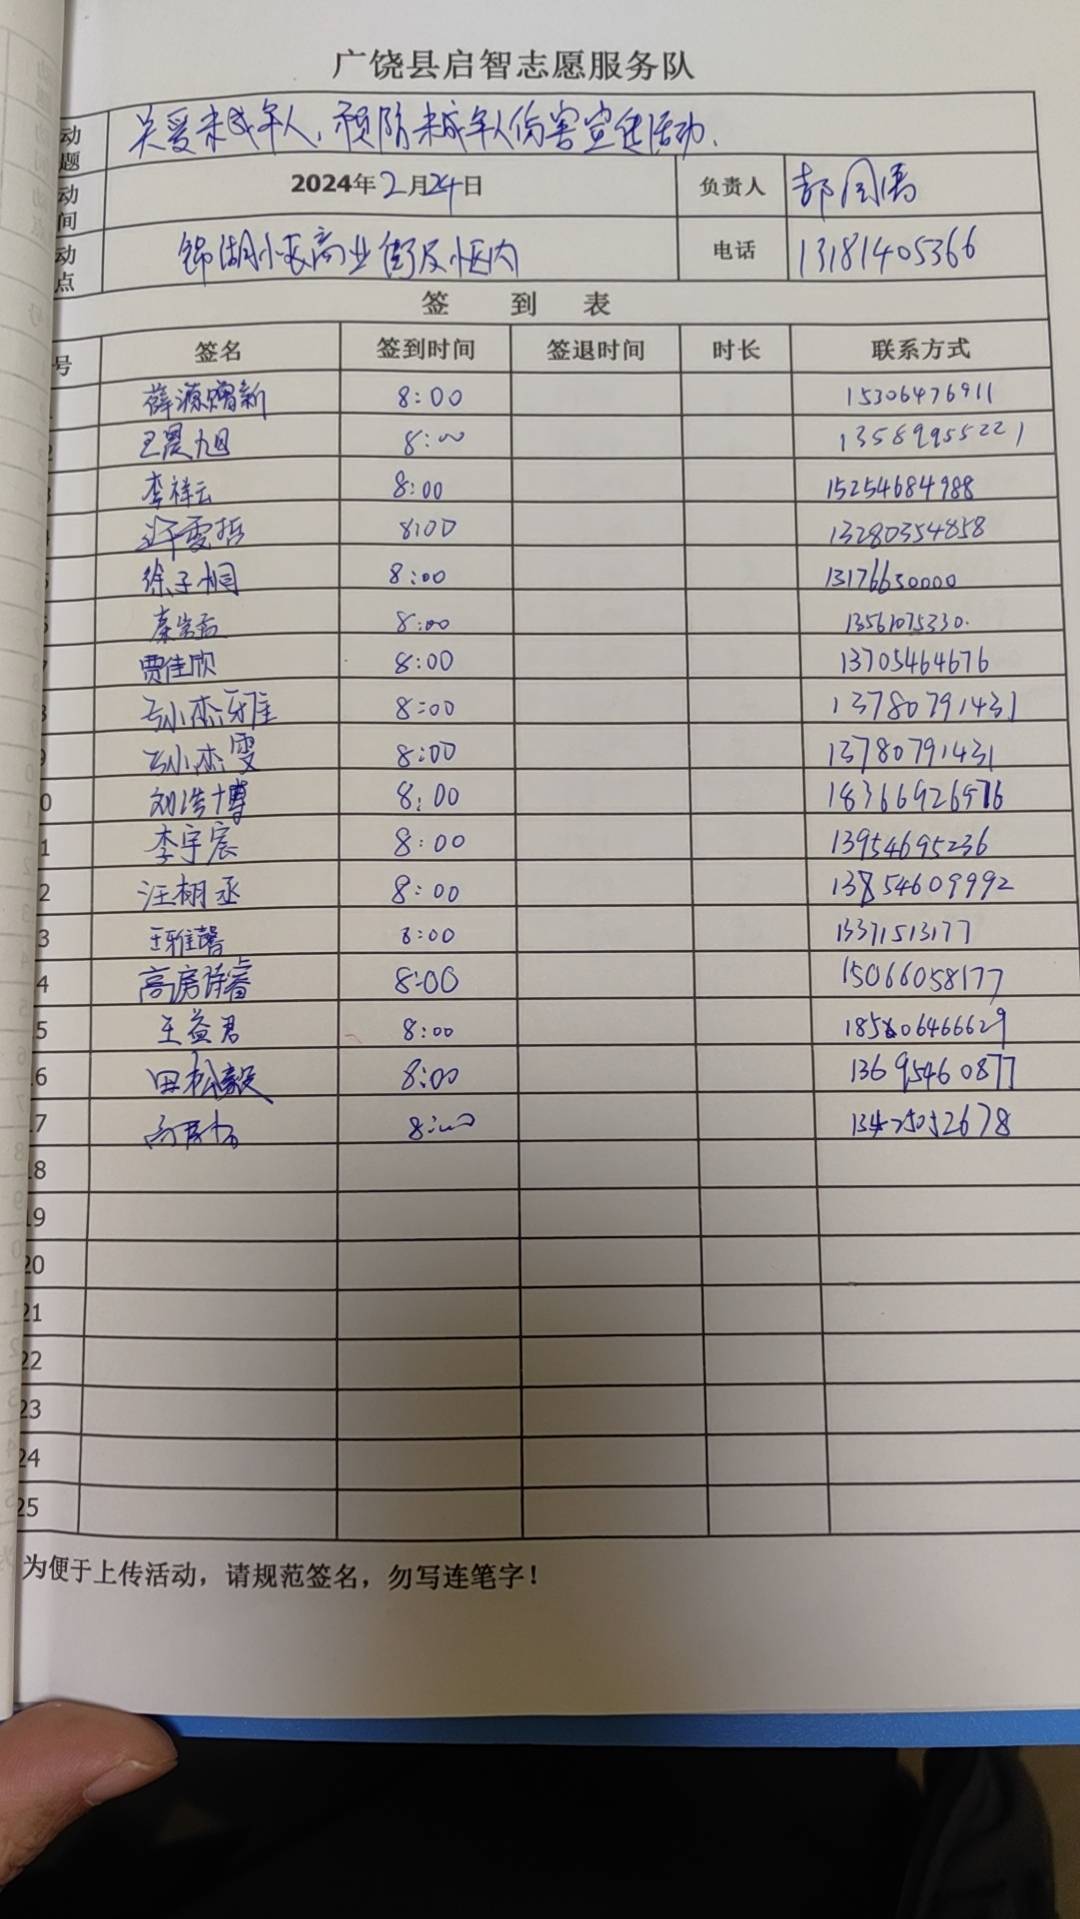 广饶县启智志愿服务队
动题 关爱未成年人,预防未成年人伤害宣传活动.
动间 2024年2月24日 负责人 郭国禹
动点 锦湖小区商业街及小区内 电话 13181405366
签 到 表
号 签名 签到时间 签退时间 时长 联系方式
薛源熠新 8:00 15306476911
2 王晨旭 8:00 13589955221
李祥云 8:00 15254684988
许雯哲 8:00 13280354858
徐子桐 8:00 13176650000
秦 8:00 13561075330.
7 贾佳欣 8:00 13705464676
孙杰雅 8:00 13780791431
孙杰雯 8:00 13780791431
0 刘浩博 8:00 18366926976
1 李宇宸 8:00 13954695236
2 汪栩丞 8:00 13854609992
3 王雅馨 8:00 13371513177
4 高房祥睿 8:00 15066058177
5 王益君 8:00 18506466629
.6 田松毅 8:00 13695460877
.7 8:00 13475052678
.8
19
20
21
22
23
24
25
为便于上传活动，请规范签名，勿写连笔字！